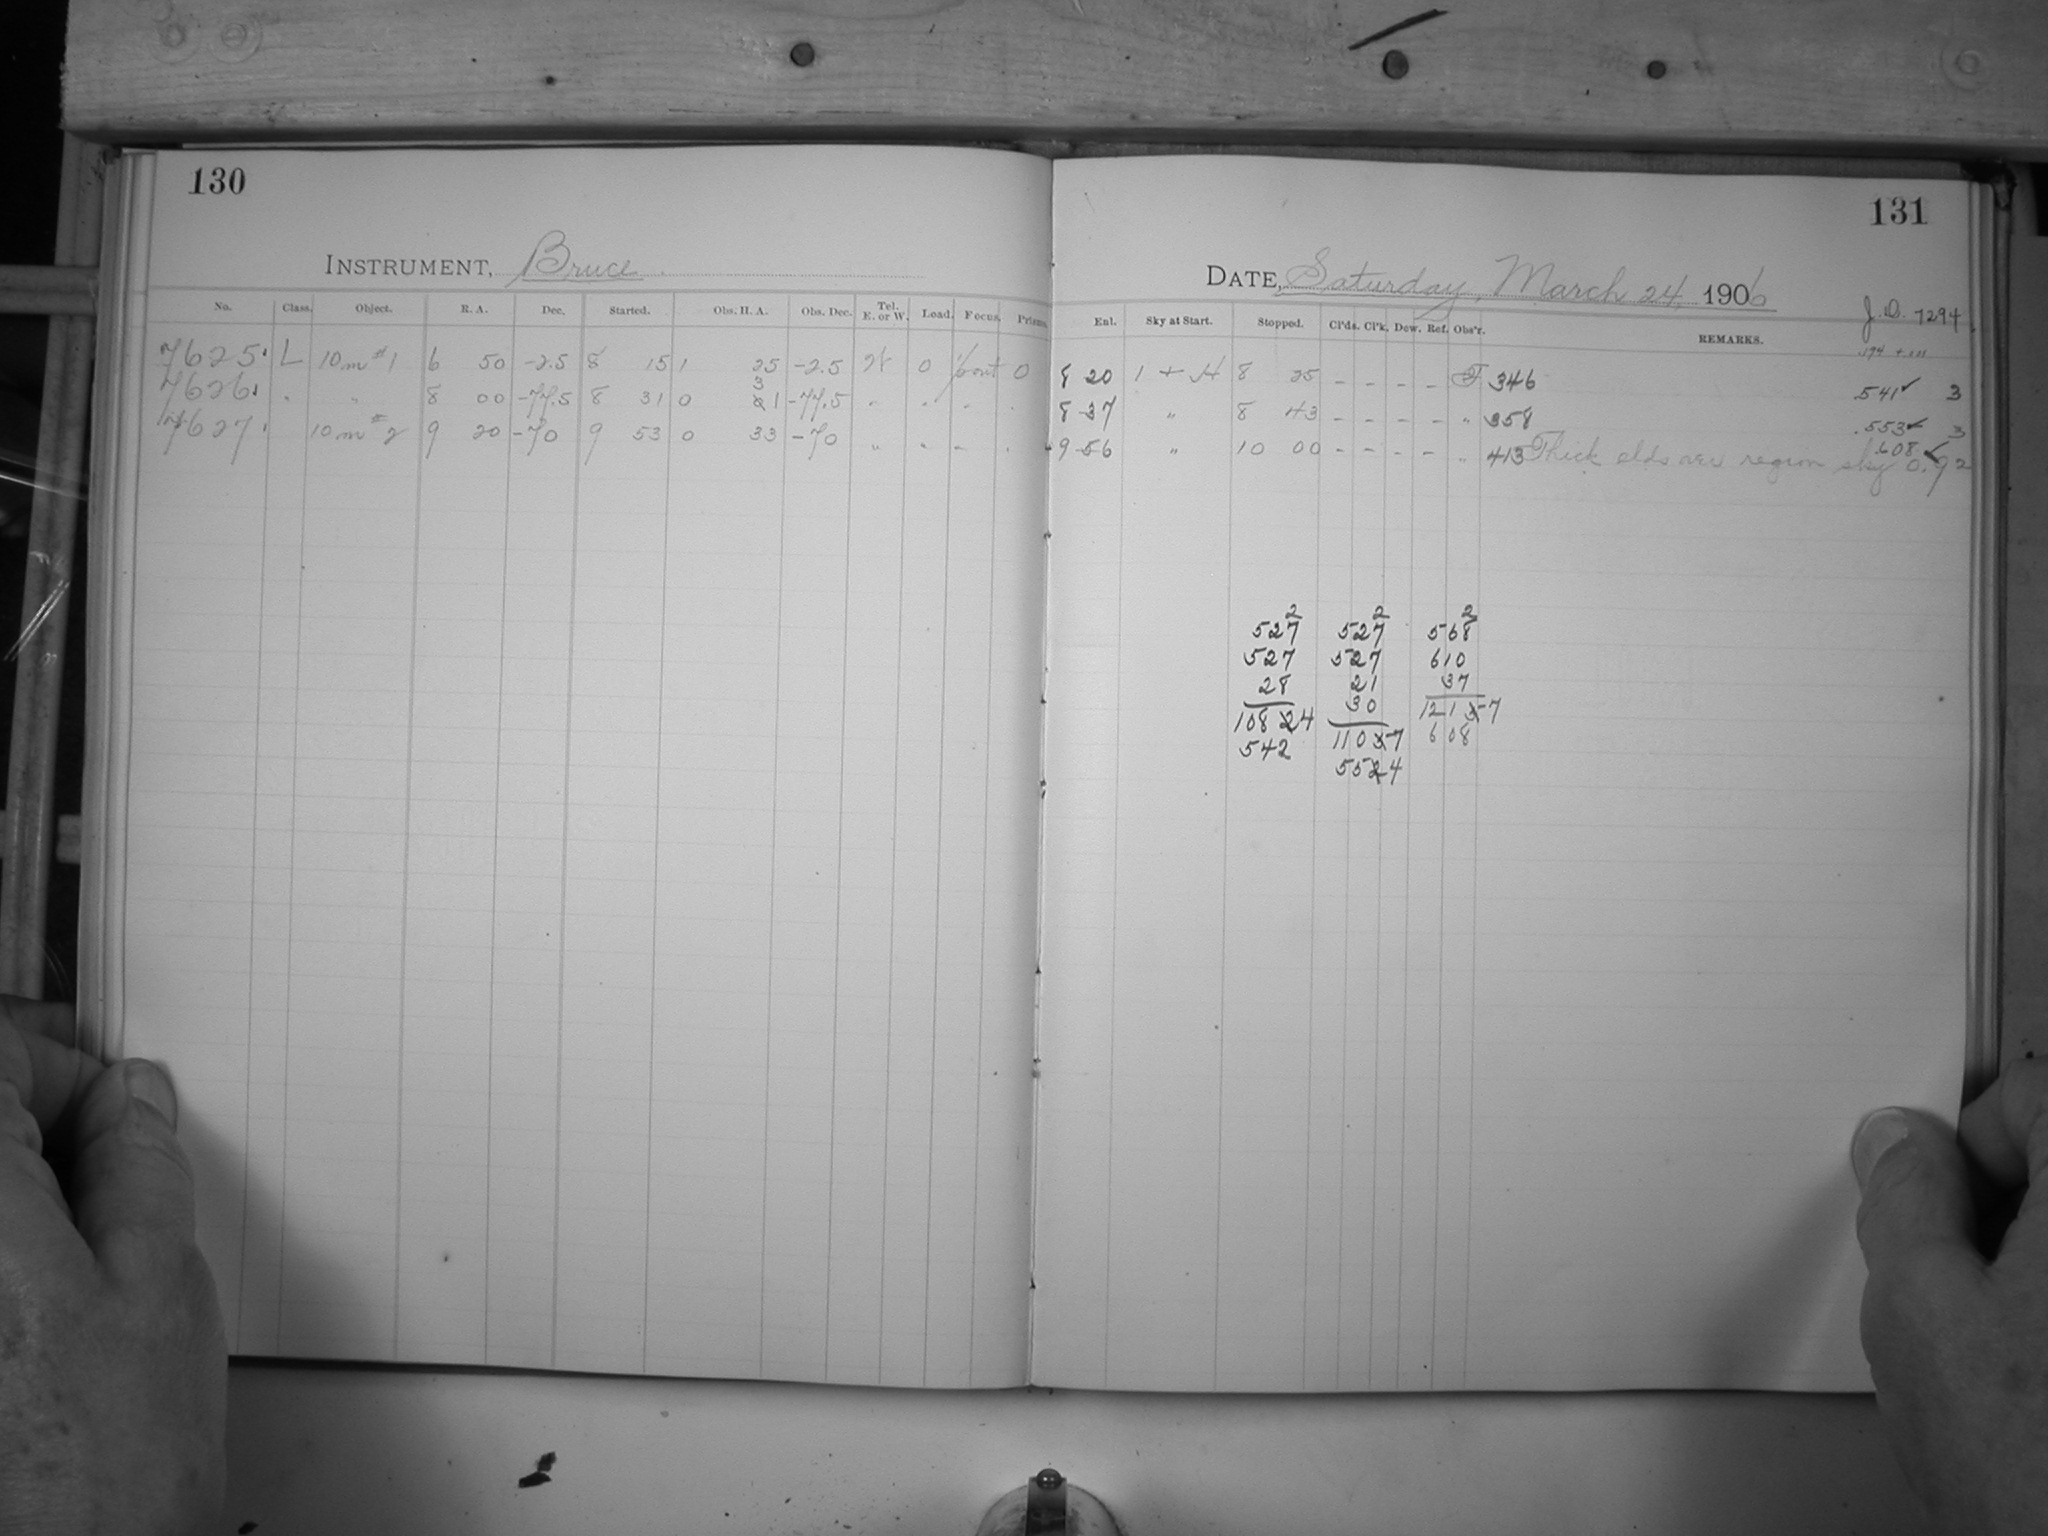 130
INSTRUMENT, Bruce
No. Class. Object. R. A. Dec. Started. Obs. H. A. Obs. Dec. Tel. E. or W. Load. Focus. Prisms.
7625. L 10m #1 6 50 -2.5 8 15 1 25 -2.5 W 0 out 0
7626. " " 8 00 -77.5 8 31 0 31 -77.5 " " " "
7627. 10m #2 9 20 -70 9 53 0 33 -70 " " " "
131
DATE, Saturday, March 24, 1906
J. D. 7294
Enl. Sky at Start. Stopped. Cl'ds. Cl'k. Dew. Ref. Obs'r. REMARKS.
8 20 1 + H 8 25 - - - - F 346 .541 ✓ 3
8 37 " 8 43 - - - - " 358 .553 ✓ 3
9 56 " 10 00 - - - - " 413 Thick clds over region sky 0. .608 ✓ 2
2 2 2
527 527 568
527 527 610
28 21 37
30
1084 1107 1217
542 554 608